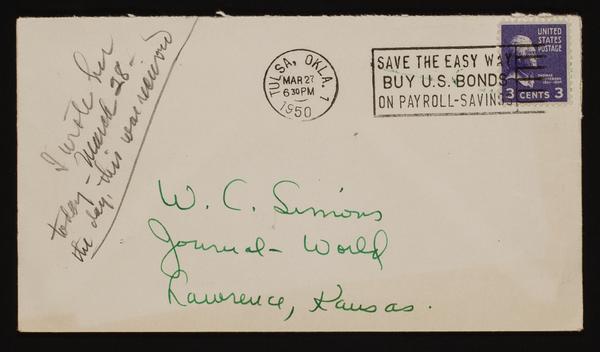 I wrote her
today - March 28 -
the day, this was received
TULSA, OKLA. 1
MAR 27
6 30 PM
1950
SAVE THE EASY WAY
BUY U.S. BONDS
ON PAYROLL-SAVINGS
UNITED
STATES
POSTAGE
THOMAS
JEFFERSON
3 CENTS 3
W. C. Simons
Journal - World
Lawrence, Kansas.